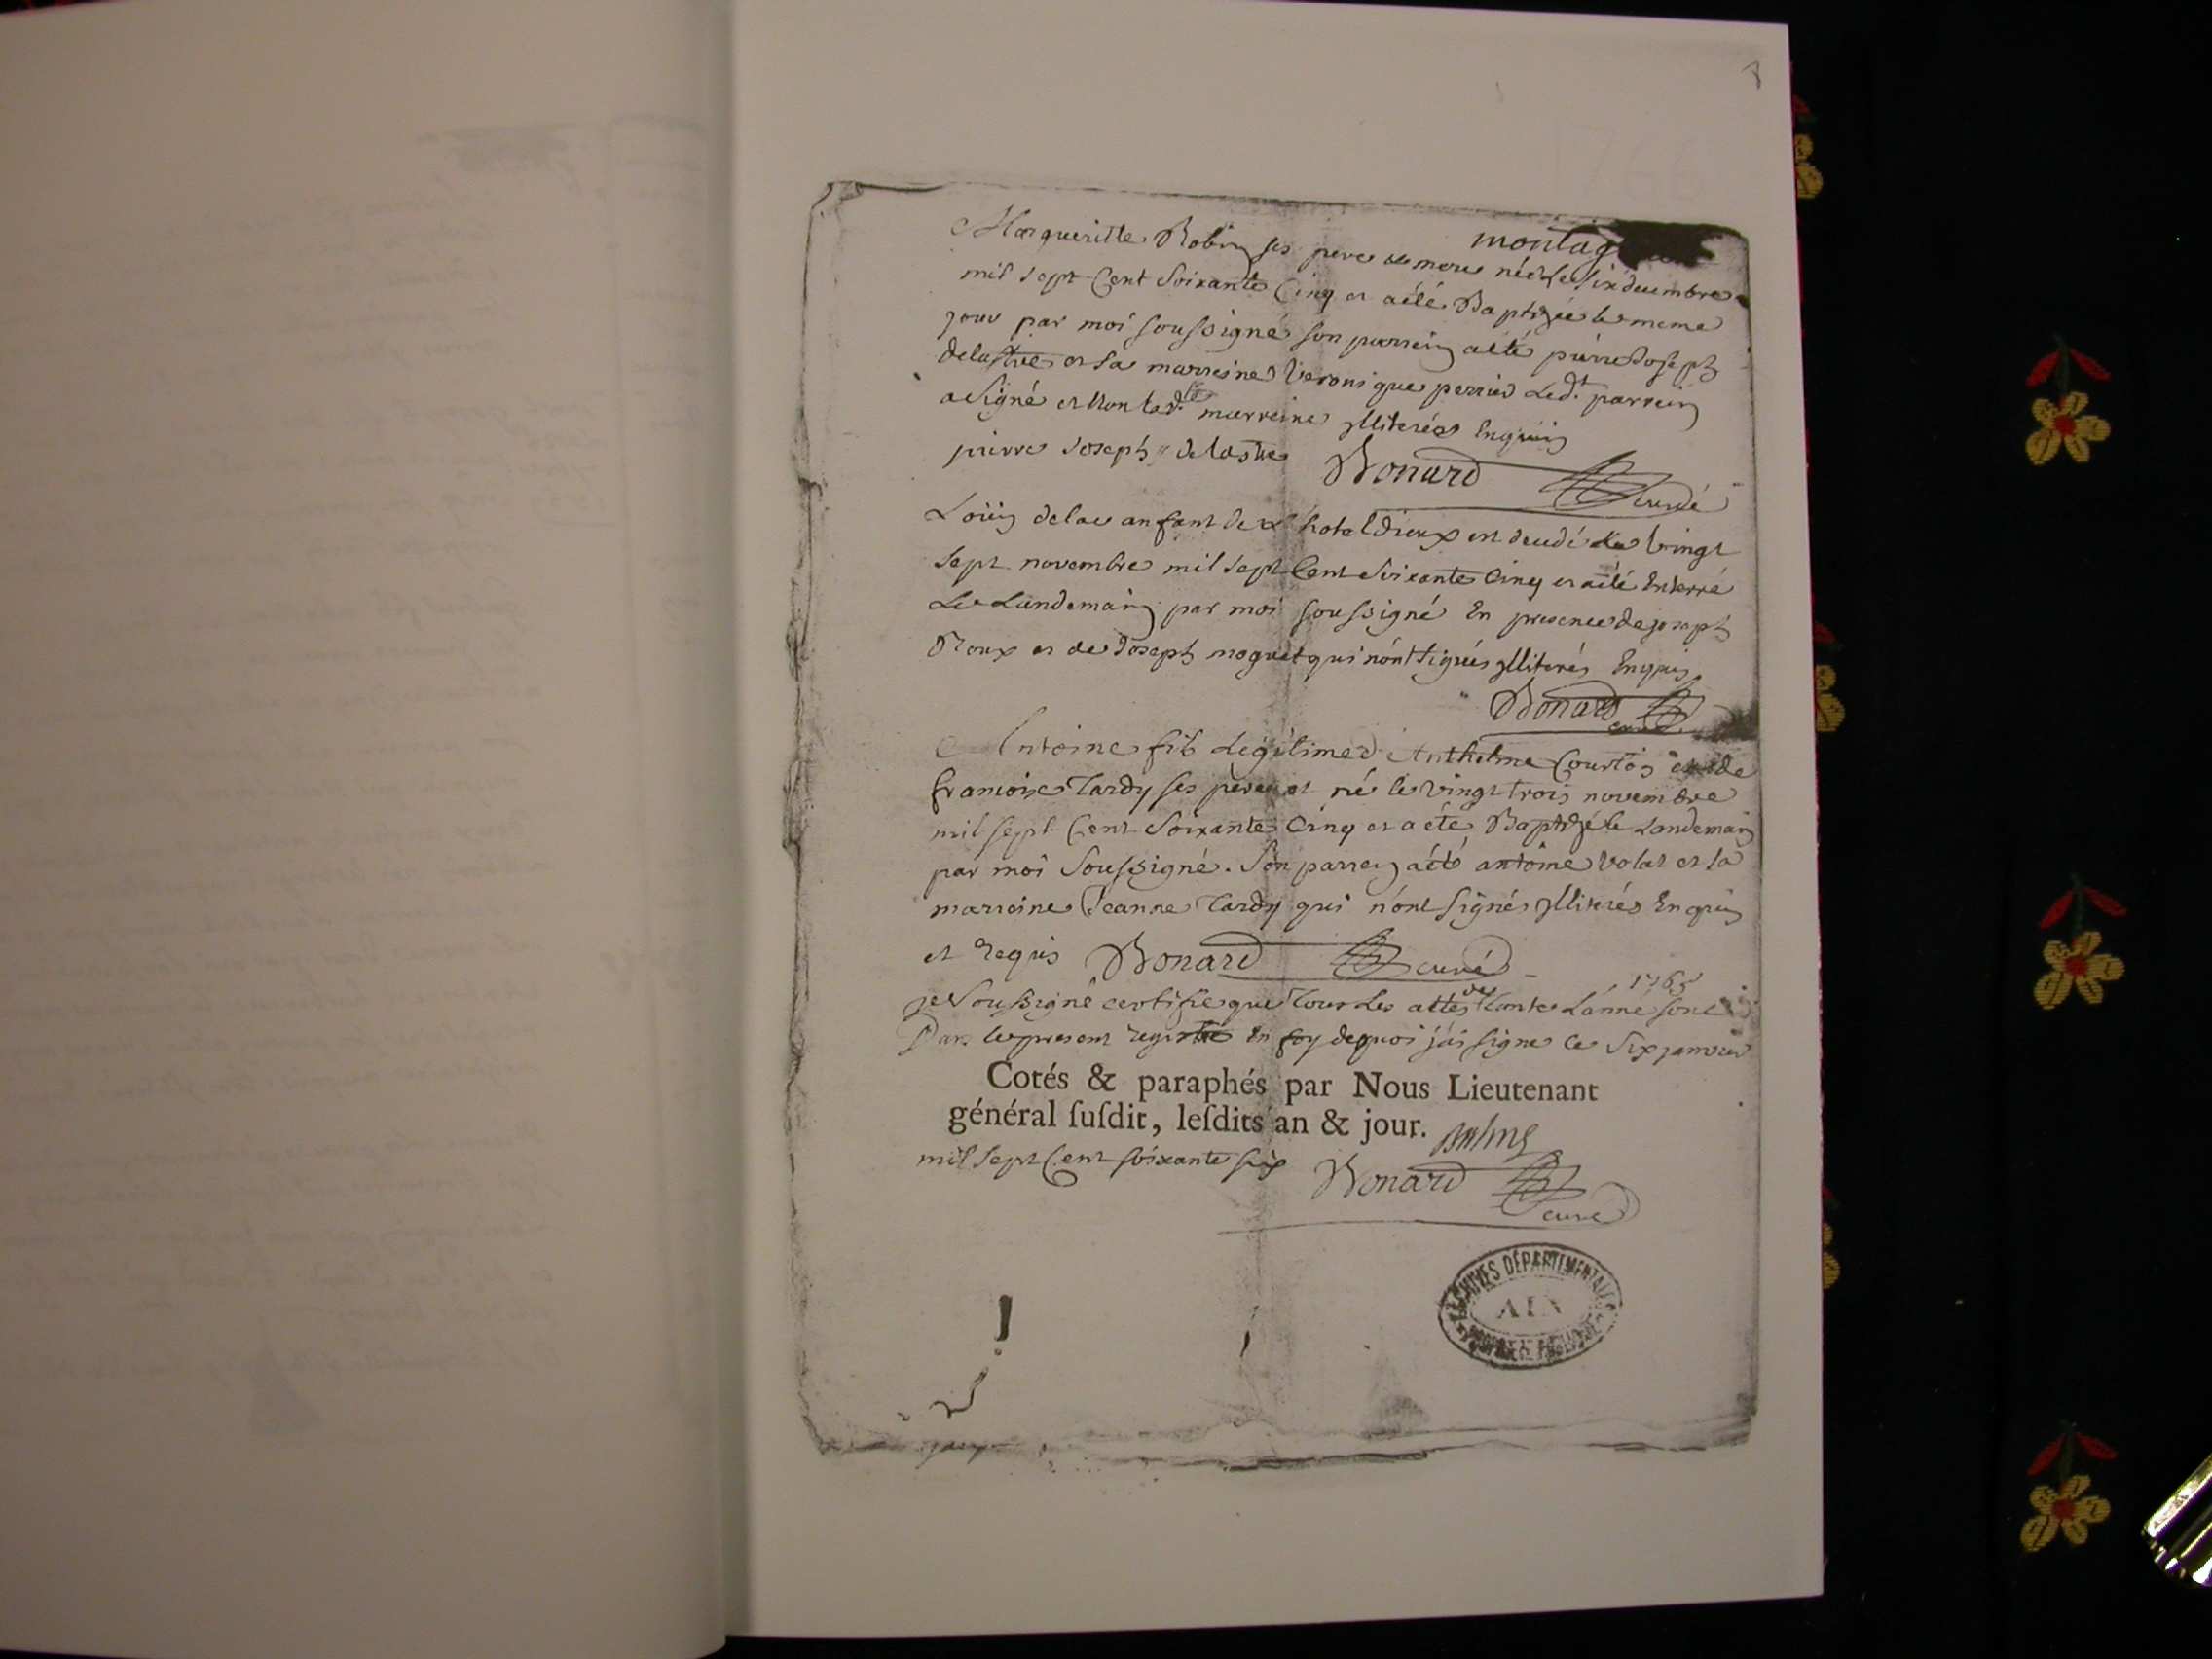 montag
Margueritte Robin ses pere et mere née le six decembre
mil sept Cent Soixante Cinq et a été Baptizée le meme
jour par moi soussigné son parrein a été pierre Joseph
delastre et sa marreine Veronique perrier Led.t parrein
a Signé et non lad.te marreine ylliterés Enquis
pierre Joseph delastre Bonard curé
Loüis delac anfant de l'hotel Dieux est decedé le vingt
sept novembre mil sept Cent Soixante Cinq et a été Enterré
Le Landemain par moi soussigné En presence de joseph
Roux et de Joseph moguet qui n'ont signés ylliterés Enquis
Bonard curé
Antoine fils Legitime d'Anthelme Courtois et de
francoise Tardy ses pere et né le vingt trois novembre
mil sept Cent Soixante Cinq et a été Baptizé le Landemain
par moi Soussigné. Son parrein a été antoine Volat et sa
marreine Jeanne Tardy qui n'ont signés ylliterés Enquis
et requis Bonard curé
1765
je Soussigné certifie que Tous Les actes de toute L'anné sont
Dans le present registre En foy de quoi j'ai signe ce Six janvier
Cotés & paraphés par Nous Lieutenant
général ſuſdit, leſdits an & jour.
mil sept Cent soixante six Bonard
curé
ARCHIVES DÉPARTEMENTALES
AIN